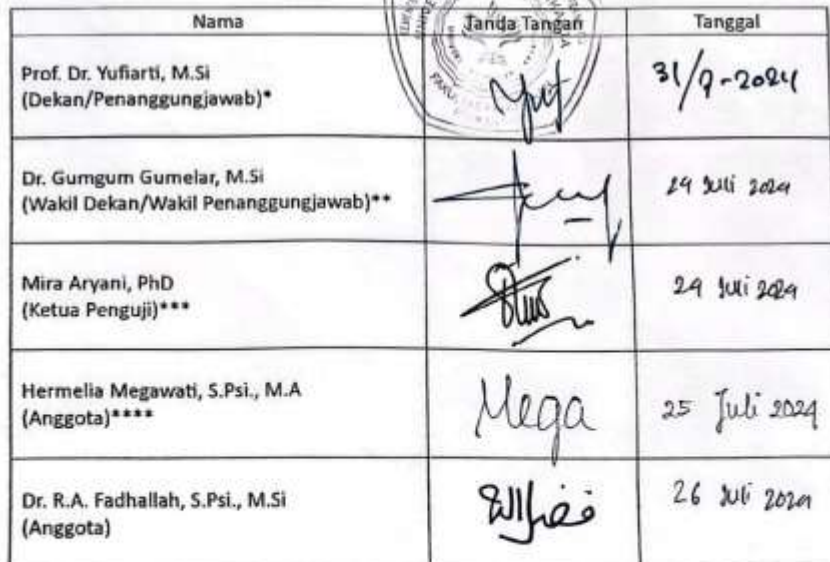 Nama Tanda Tangan Tanggal
Prof. Dr. Yufiarti, M.Si
(Dekan/Penanggungjawab)* 31/7-2024
Dr. Gumgum Gumelar, M.Si
(Wakil Dekan/Wakil Penanggungjawab)** 29 Juli 2024
Mira Aryani, PhD
(Ketua Penguji)*** 29 Juli 2024
Hermelia Megawati, S.Psi., M.A
(Anggota)**** Mega 25 Juli 2024
Dr. R.A. Fadhallah, S.Psi., M.Si
(Anggota) 26 Juli 2024